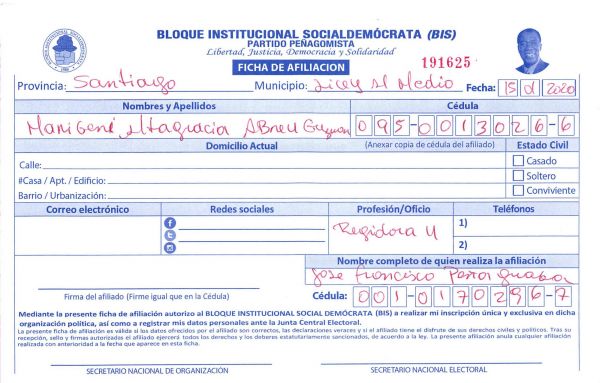 BLOQUE INSTITUCIONAL SOCIALDEMÓCRATA (BIS)
PARTIDO PEÑAGOMISTA
Libertad, Justicia, Democracia y Solidaridad
FICHA DE AFILIACION
191625
Provincia: Santiago Municipio: Licey Al Medio Fecha: 15 d 2020
Nombres y Apellidos Cédula
Altagracia ABreu Guzman 095-0013026-6
Domicilio Actual (Anexar copia de cédula del afiliado) Estado Civil
Calle: Casado
#Casa / Apt. / Edificio: Soltero
Barrio / Urbanización: Conviviente
Correo electrónico Redes sociales Profesión/Oficio Teléfonos
Regidora 1)
2)
Nombre completo de quien realiza la afiliación
Jose Francisco
Firma del afiliado (Firme igual que en la Cédula) Cédula: 001-0170296-7
Mediante la presente ficha de afiliación autorizo al BLOQUE INSTITUCIONAL SOCIAL DEMÓCRATA (BIS) a realizar mi inscripción única y exclusiva en dicha
organización política, así como a registrar mis datos personales ante la Junta Central Electoral.
La presente ficha de afiliación es válida si los datos ofrecidos por el afiliado son correctos, las declaraciones veraces y si el afiliado tiene el disfrute de sus derechos civiles y políticos. Tras su
recepción, sello y firmas autorizadas el afiliado ejercerá todos los derechos y los deberes estatutariamente sancionados, de acuerdo a la ley. La presente afiliación anula cualquier afiliación
realizada con anterioridad a la fecha que aparece en esta ficha.
SECRETARIO NACIONAL DE ORGANIZACIÓN SECRETARIO NACIONAL ELECTORAL